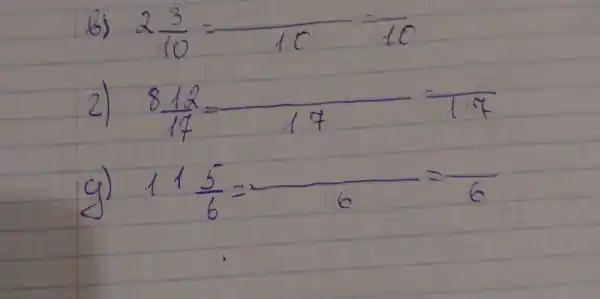 в) 2 3/10 = ___/10 = ___/10
г) 8 12/17 = ___/17 = ___/17
д) 11 5/6 = ___/6 = ___/6